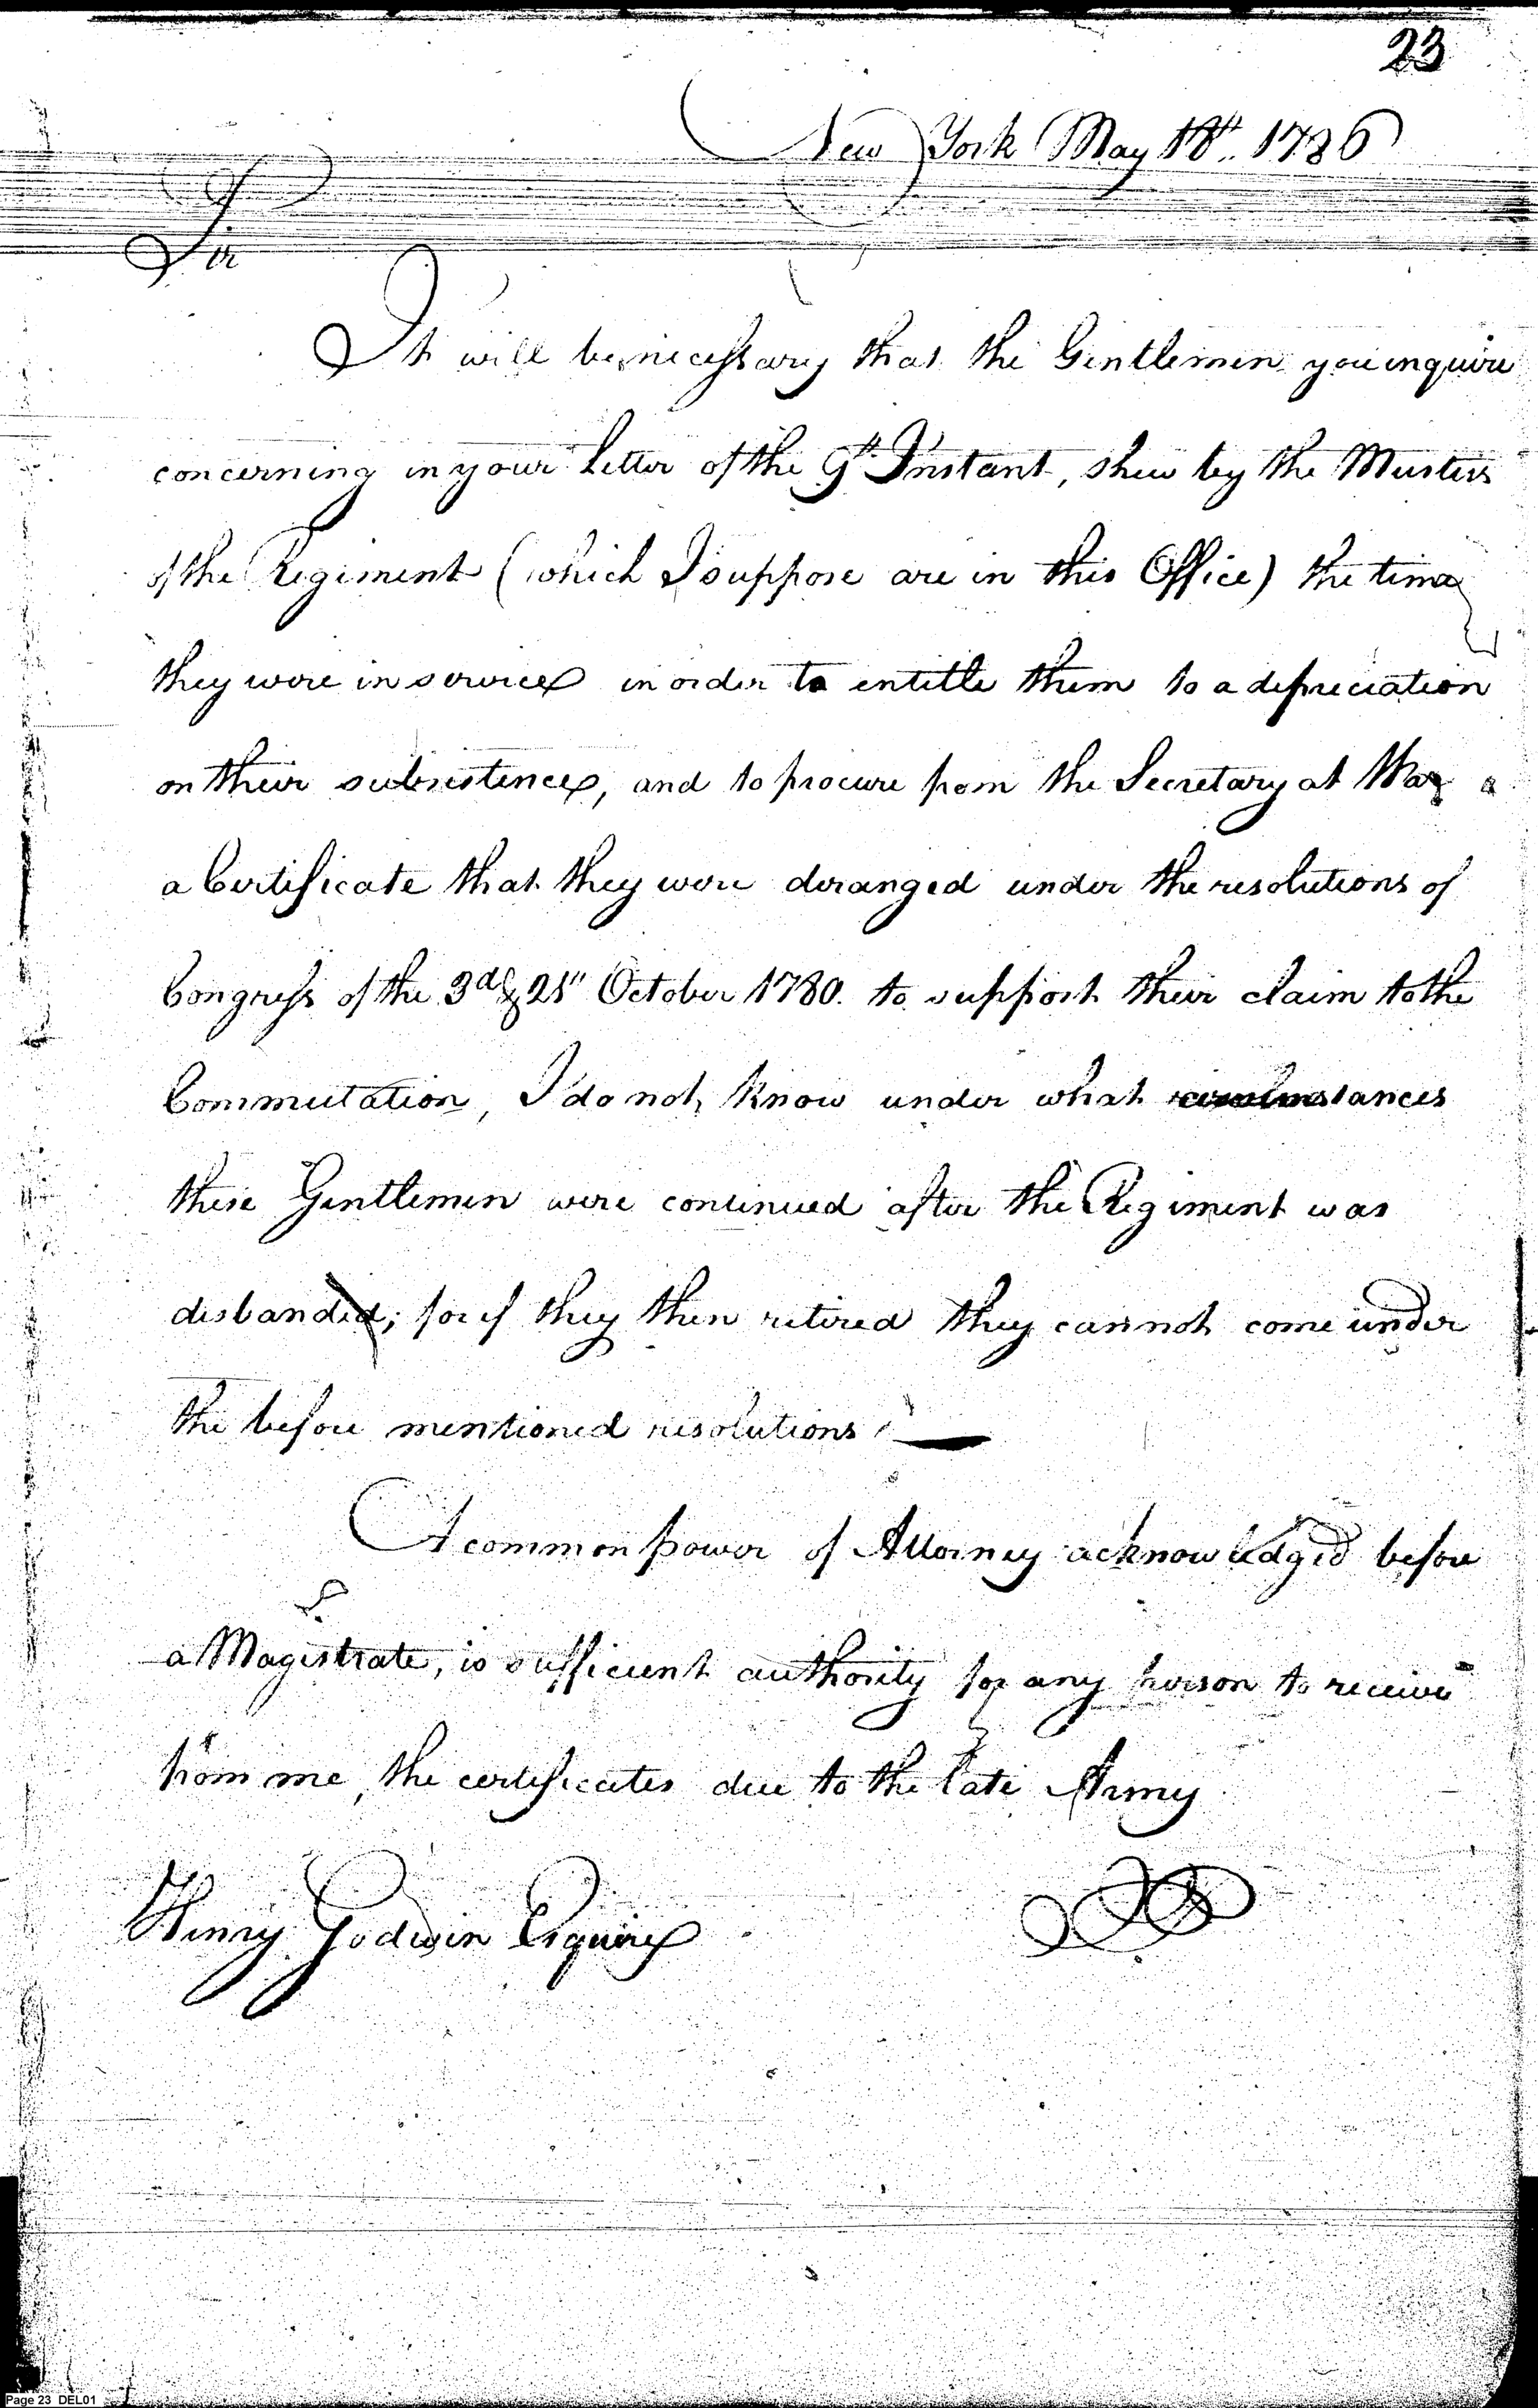 23
New York May 18th. 1786
Sir
It will be necessary that the Gentlemen you inquire
concerning in your letter of the 9th Instant, shew by the Musters
of the Regiment (which I suppose are in this Office) the time
they were in service in order to entitle them to a depreciation
on their subsistence, and to procure from the Secretary at War a
a Certificate that they were deranged under the resolutions of
Congress of the 3d & 21st October 1780. to support their claim to the
Commutation, I do not know under what circumstances
these Gentlemen were continued after the Regiment was
disbanded; for if they then retired they cannot come under
the before mentioned resolutions
A common power of Attorney acknowledged before
a Magistrate, is sufficient authority for any person to receive
from me, the certificates due to the late Army
Henry Godwin Esquire
Page 23 DEL01